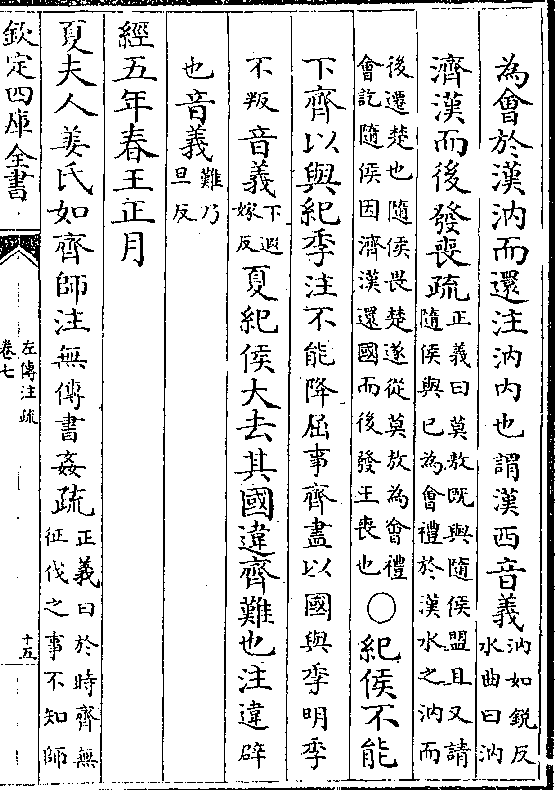 為會於漢汭而還注汭内也謂漢西音義汭如鋭反水曲曰汭
濟漢而後發喪疏正義曰莫敖既與隨侯盟且又請隨侯與已為會禮於漢水之汭而
後還楚也隨侯畏楚遂從莫敖為會禮會訖隨侯因濟漢還國而後發王喪也○紀侯不能
下齊以與紀季注不能降屈事齊盡以國與季明季
不叛音義下遐嫁反夏紀侯大去其國違齊難也注違辟
也音義難乃旦反
經五年春王正月
夏夫人姜氏如齊師注無傳書姦疏正義曰於時齊無征伐之事不知師
欽定四庫全書
左傳注疏
卷七
十五